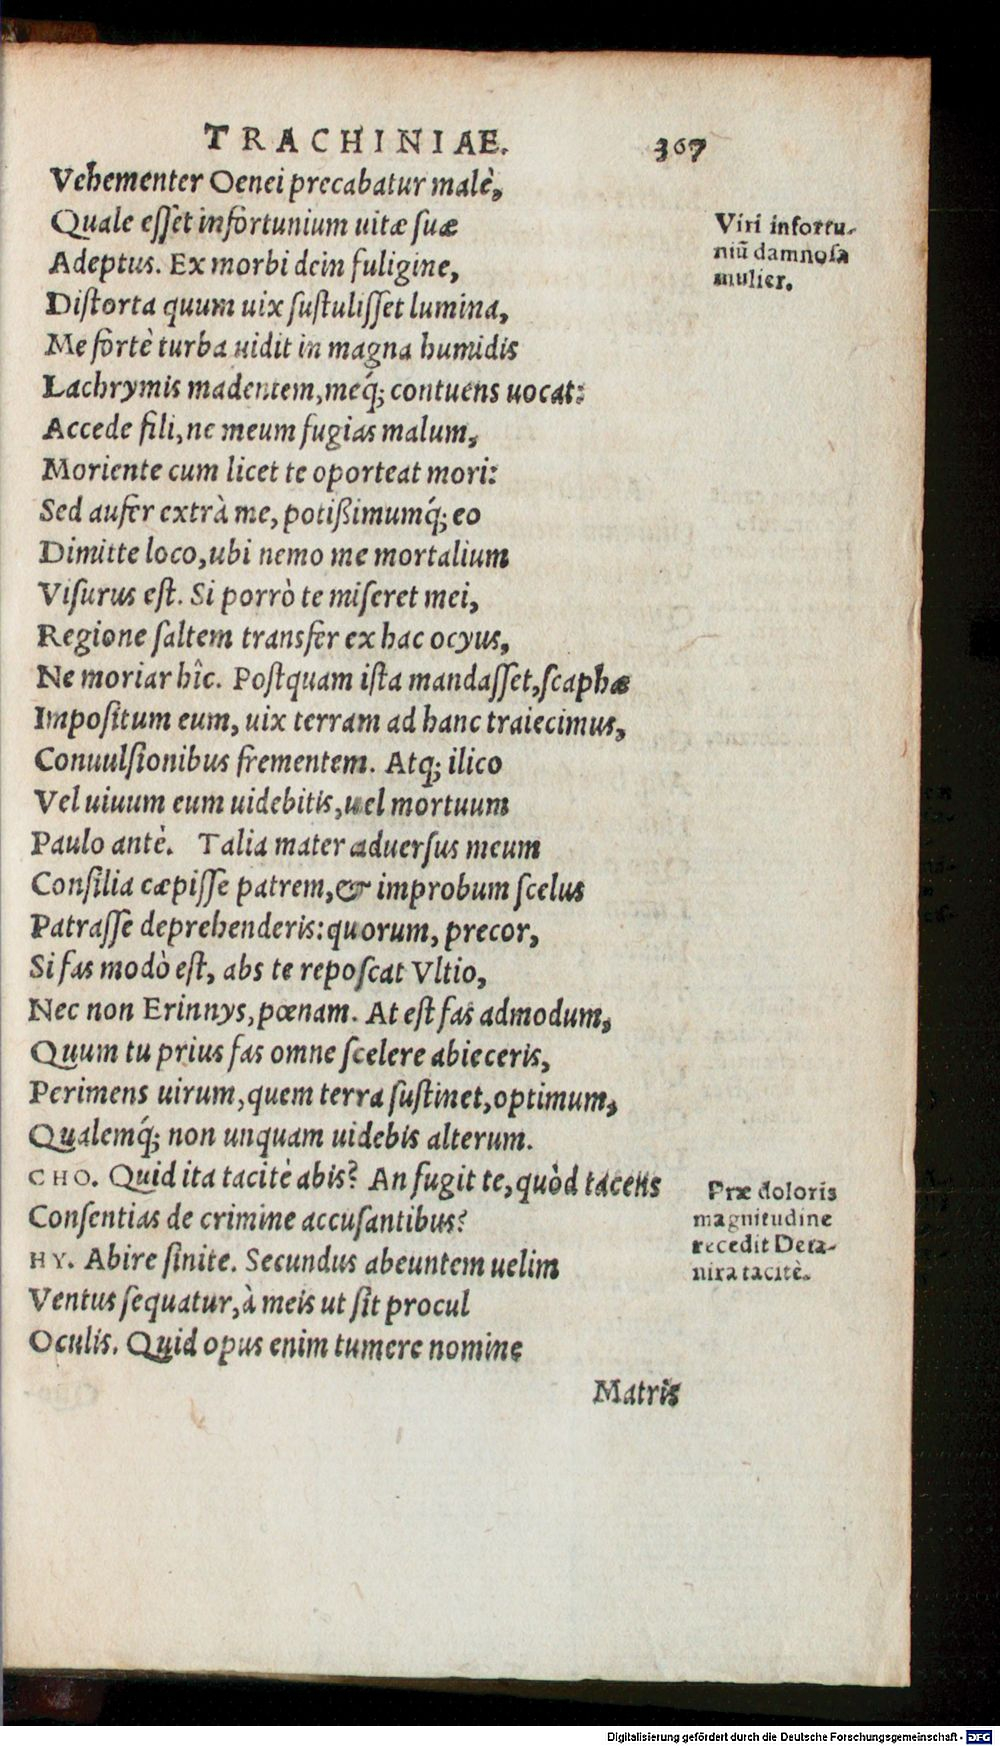 TRACHINIAE. 367
Vehementer Oenei precabatur malè,
Quale esset infortunium uitæ suæ
Adeptus. Ex morbi dein fuligine,
Distorta quum uix sustulisset lumina,
Me fortè turba uidit in magna humidis
Lachrymis madentem, meq́; contuens uocat:
Accede fili, ne meum fugias malum,
Moriente cum licet te oporteat mori:
Sed aufer extrà me, potißimumq́; eo
Dimitte loco, ubi nemo me mortalium
Visurus est. Si porrò te miseret mei,
Regione saltem transfer ex hac ocyus,
Ne moriar hîc. Postquam ista mandasset, scaphæ
Impositum eum, uix terram ad hanc traiecimus,
Conuulsionibus frementem. Atq; ilico
Vel uiuum eum uidebitis, uel mortuum
Paulo antè. Talia mater aduersus meum
Consilia cæpisse patrem, & improbum scelus
Patrasse deprehenderis: quorum, precor,
Si fas modò est, abs te reposcat Vltio,
Nec non Erinnys, pœnam. At est fas admodum,
Quum tu prius fas omne scelere abieceris,
Perimens uirum, quem terra sustinet, optimum,
Qualemq́; non unquam uidebis alterum.
CHO. Quid ita tacitè abis? An fugit te, quòd tacens
Consentias de crimine accusantibus?
HY. Abire sinite. Secundus abeuntem uelim
Ventus sequatur, à meis ut sit procul
Oculis. Quid opus enim tumere nomine
Matris
Viri infortu-
niū damnosa
mulier.
Præ doloris
magnitudine
recedit Deia-
nira tacitè.
Digitalisierung gefördert durch die Deutsche Forschungsgemeinschaft - DFG